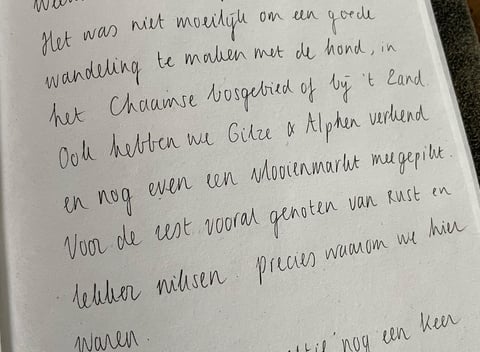 Het was niet moeilijk om een goede
wandeling te maken met de hond, in
het Chaamse bosgebied of bij 't Zand.
Ook hebben we Gilze & Alphen verkend
en nog even een vlooienmarkt meegepikt.
Voor de rest vooral genoten van Rust en
lekker niksen. Precies waarom we hier
waren.
nog een keer